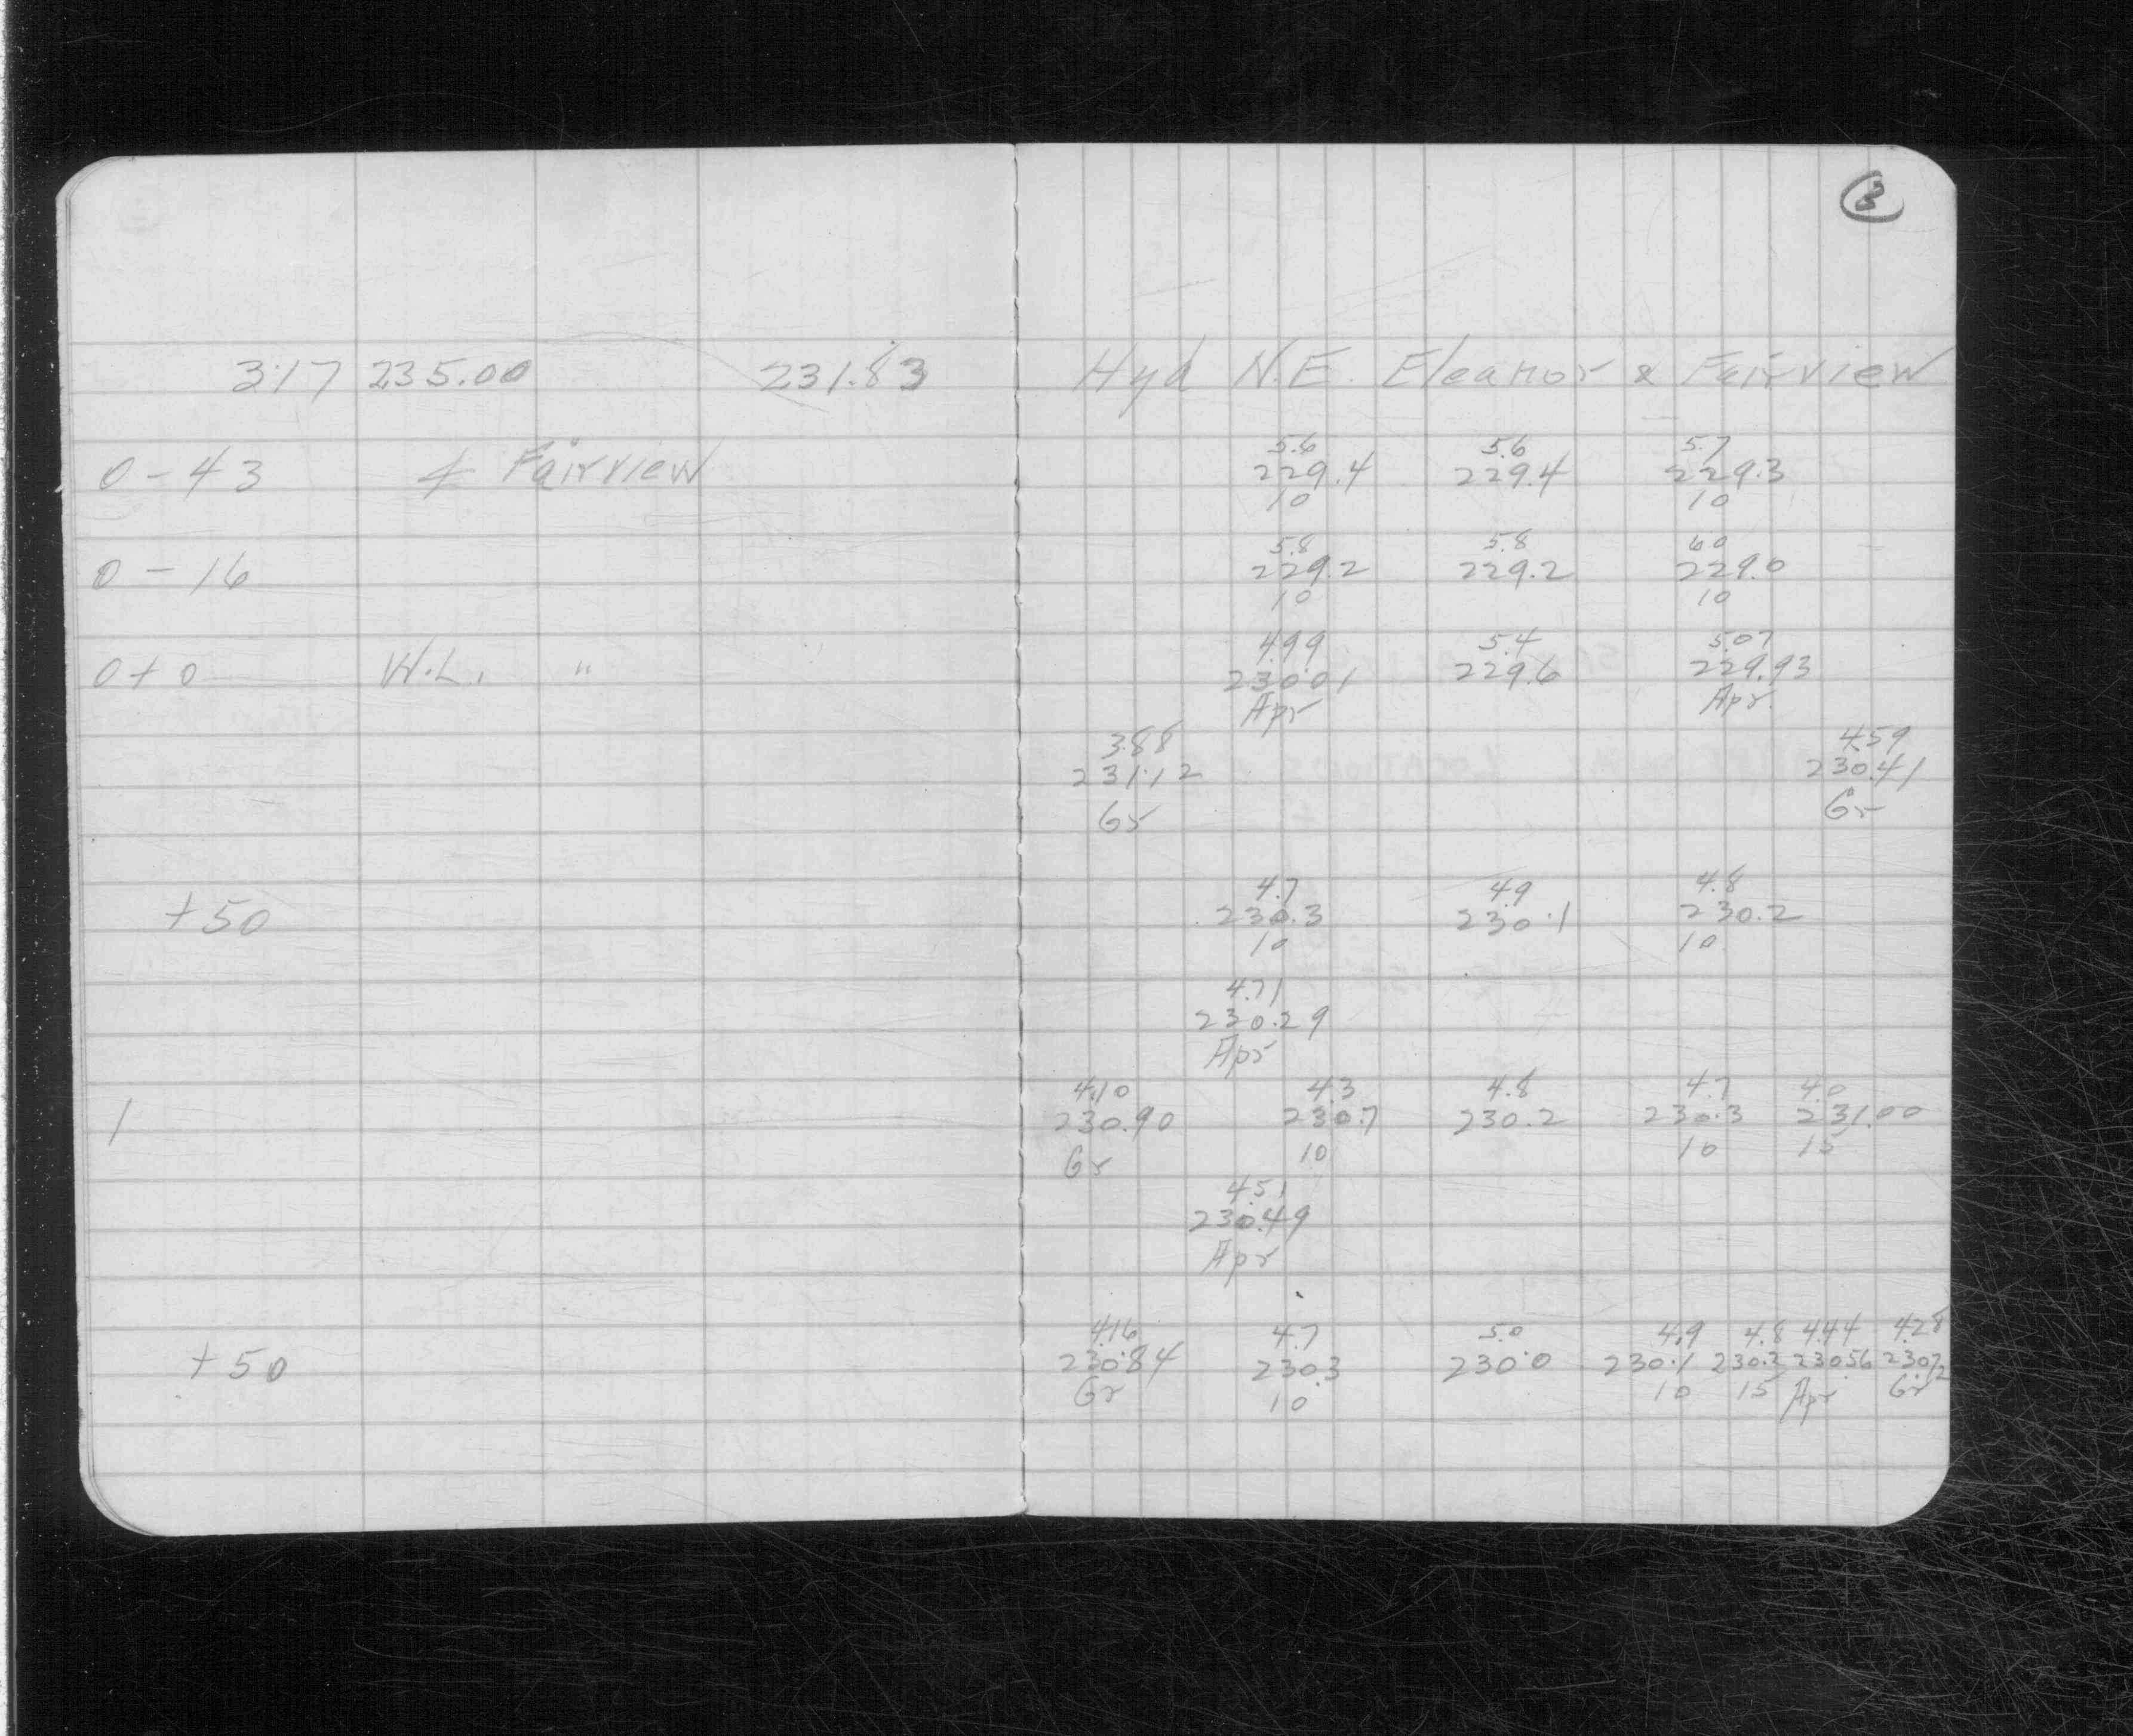 3
3.17 235.00 231.83 Hyd N.E. Eleanor & Fairview
5.6 5.6 5.7
0-43 ℄ Fairview 229.4 229.4 229.3
10 10
5.8 5.8 6.0
0-16 229.2 229.2 229.0
10 10
4.99 5.4 5.07
0+0 W.L. " 230.01 229.6 229.93
Apr Apr.
3.88 4.59
231.12 230.41
Gr Gr
4.7 4.9 4.8
+50 230.3 230.1 230.2
10 10
4.71
230.29
Apr
4.10 4.3 4.8 4.7 4.0
1 230.90 230.7 230.2 230.3 231.00
Gr 10 10 15
4.51
230.49
Apr
4.16 4.7 5.0 4.9 4.8 4.44 4.28
+50 230.84 230.3 230.0 230.1 230.2 230.56 230.72
Gr 10 10 15 Apr Gr